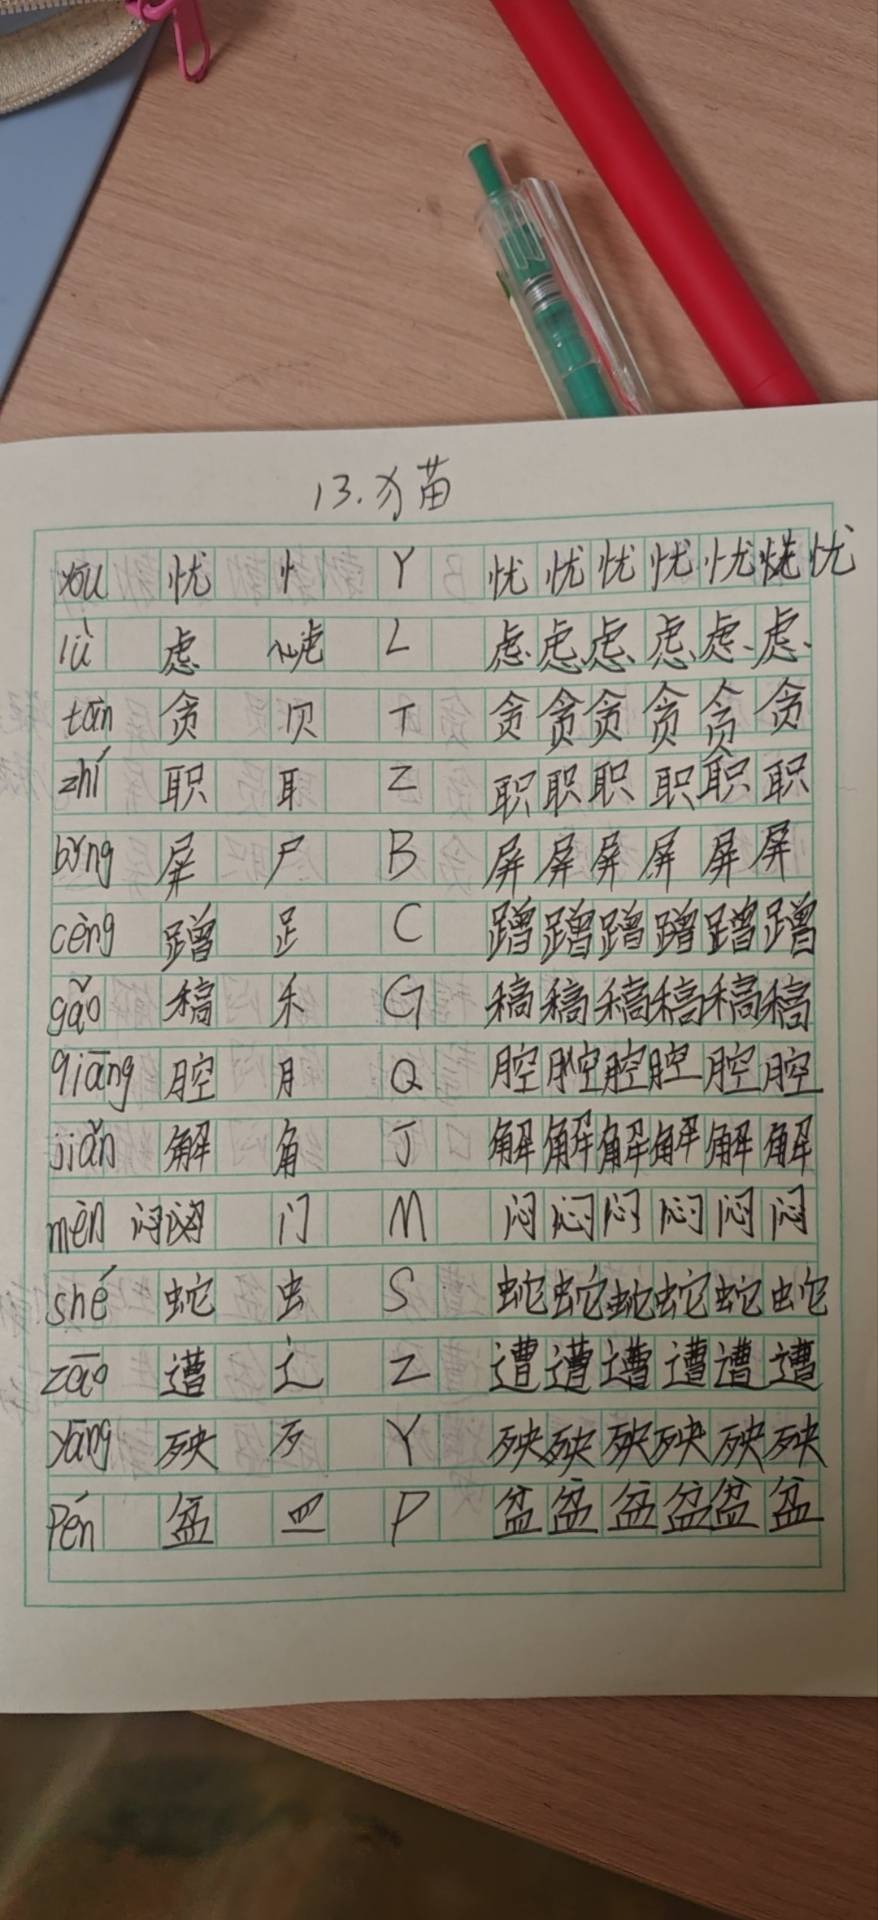 13.犭苗
yōu 忧 忄 Y 忧 忧 忧 忧 忧 忧
lǜ 虑 虍 L 虑 虑 虑 虑 虑 虑
tān 贪 贝 T 贪 贪 贪 贪 贪 贪
zhí 职 耳 Z 职 职 职 职 职 职
bǐng 屏 尸 B 屏 屏 屏 屏 屏 屏
cèng 蹭 足 C 蹭 蹭 蹭 蹭 蹭 蹭
gǎo 稿 禾 G 稿 稿 稿 稿 稿 稿
qiāng 腔 月 Q 腔 腔 腔 腔 腔 腔
jiǎn 解 角 J 解 解 解 解 解 解
mèn 闷 门 M 闷 闷 闷 闷 闷 闷
shé 蛇 虫 S 蛇 蛇 蛇 蛇 蛇 蛇
zāo 遭 辶 Z 遭 遭 遭 遭 遭 遭
yāng 殃 歹 Y 殃 殃 殃 殃 殃 殃
Pén 盆 皿 P 盆 盆 盆 盆 盆 盆